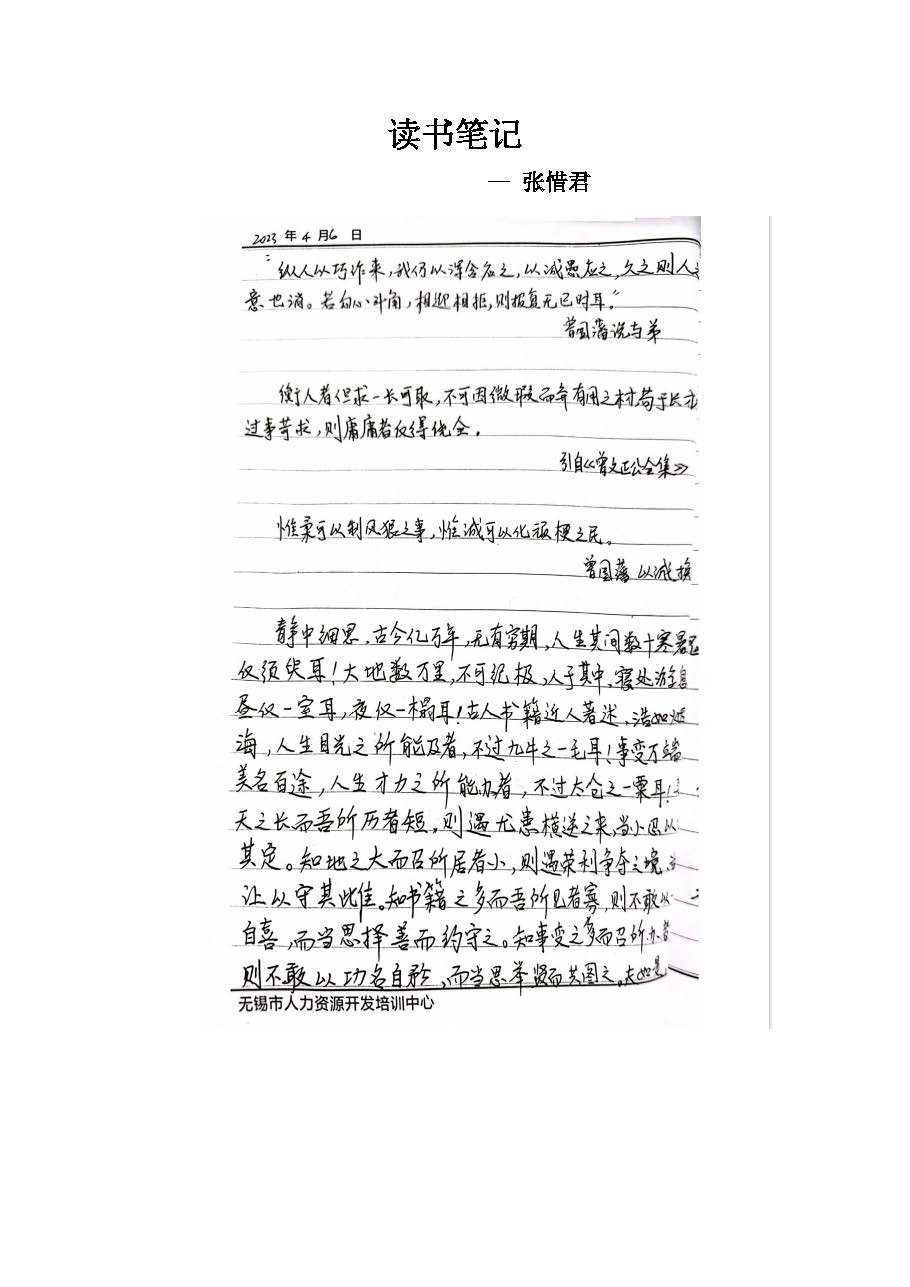 读书笔记
— 张惜君
2023 年 4 月 6 日
“纵人以巧诈来，我仍以浑含应之，以诚愚应之，久之则人之
意也消。若勾心斗角，相迎相拒，则报复无已时耳。”
曾国藩说与弟
衡人者但求一长可取，不可因微瑕而弃有用之材，苟于长
过事苛求，则庸庸者反得
引自《曾文正公全集》
惟柔可以制风狠之事，惟诚可以化顽梗之民。
曾国藩 以诚
静中细思，古今亿万年，无有穷期，人生其间数十寒暑
仅须臾耳！大地数万里，不可纪极，人于其中，寝处游息
昼仅一室耳，夜仅一榻耳！古人书籍近人著述，浩如烟
海，人生目光之所能及者，不过九牛之一毛耳！事变万端
美名百途，人生才力之所能办者，不过太仓之一粟耳！
天之长而吾所历者短，则遇尤患横逆之来，当小忍以
其定。知地之大而吾所居者小，则遇荣利争夺之境，
让以守其。知书籍之多而吾所见者寡，则不敢以
自喜，而当思择善而约守之。知事变之多而吾所办者
则不敢以功名自矜，而当思举贤而共图之。夫如是
无锡市人力资源开发培训中心